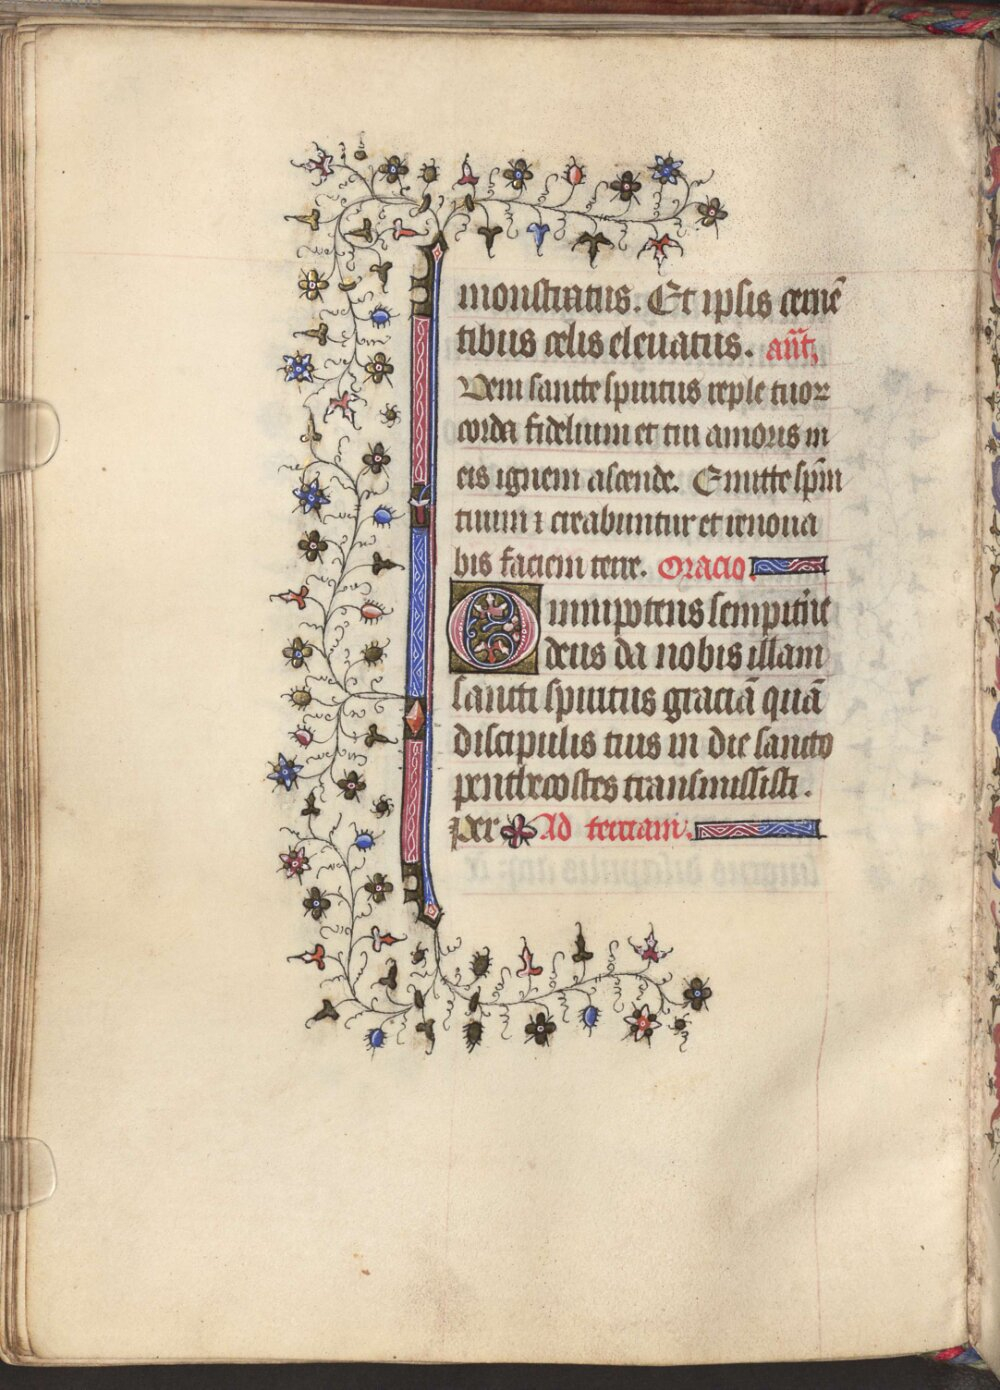 monstratus. Et ipsis cernē
tibus celis eleuatus. an̄t
Veni sancte spiritus reple tuoꝝ
corda fidelium et tui amoris in
eis ignem ascende. Emitte sp̄m
tuum ⁊ creabuntur et renoua
bis faciem terre. Oracio.
Omnipotens sempit̄ne
deus da nobis illam
sancti spiritus graciā quā
discipulis tuis in die sancto
penthecostes transmissisti.
Per Ad terciam.